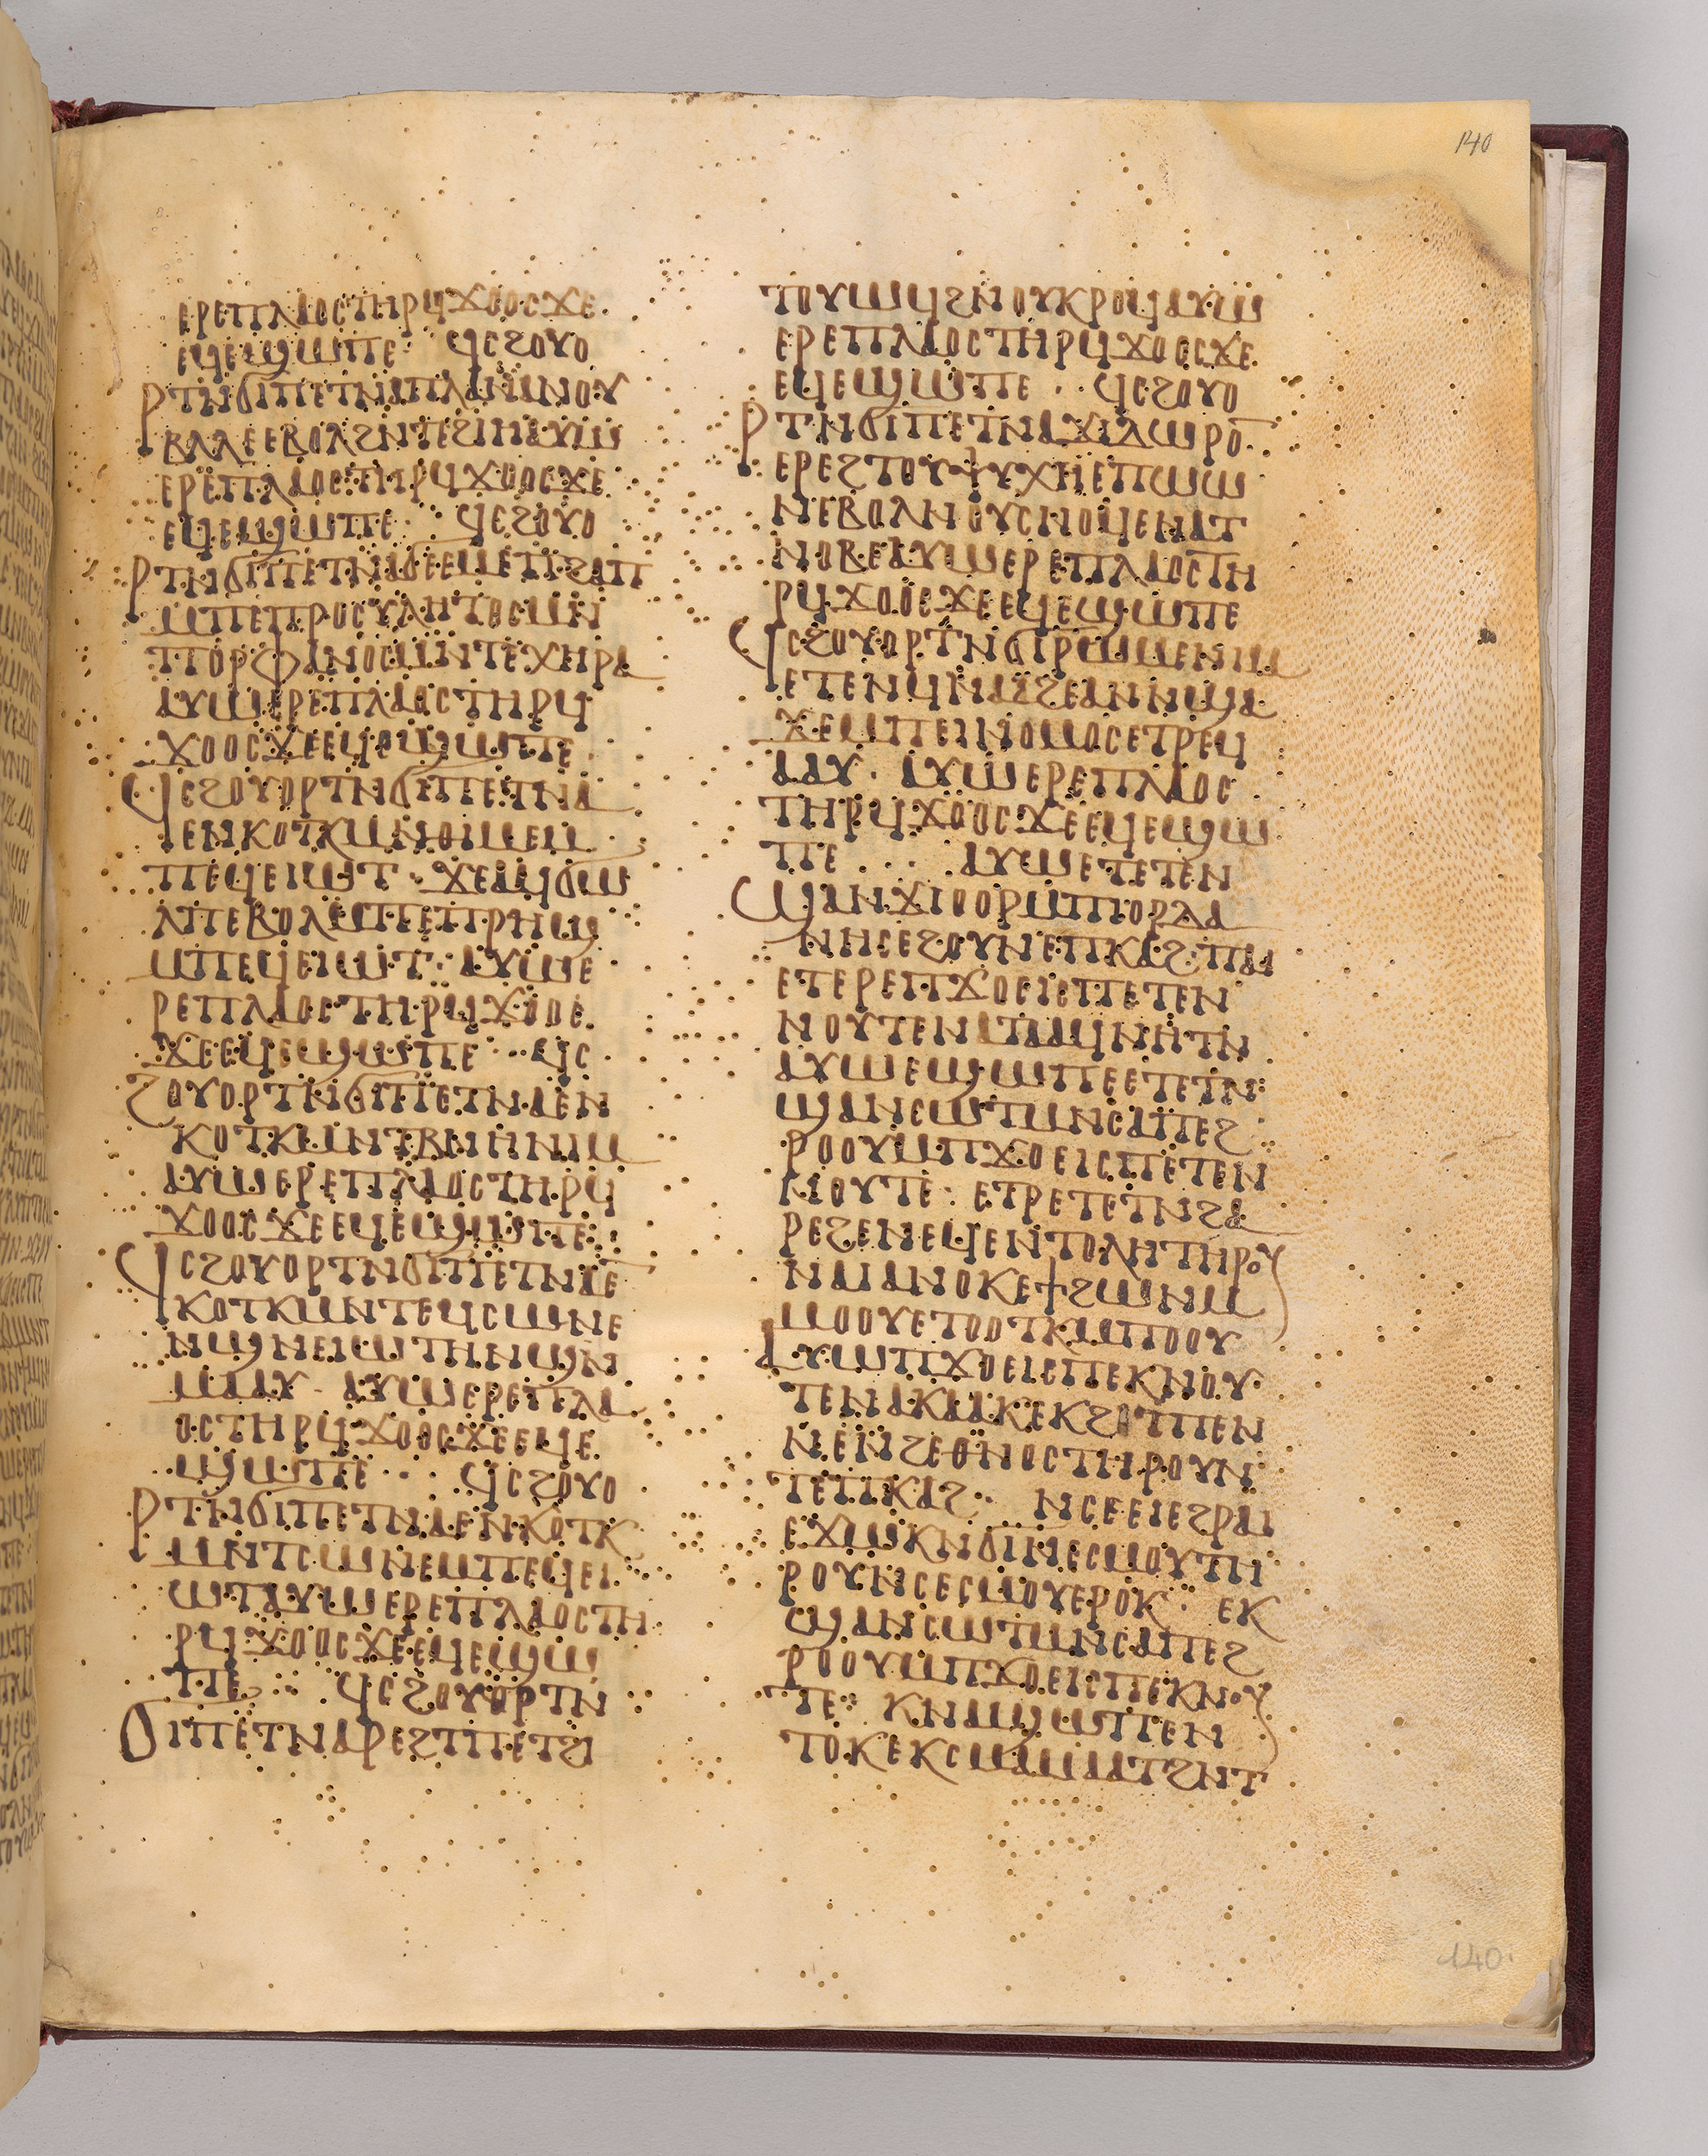 140
ⲉⲣⲉⲡⲗⲁⲟⲥⲧⲏⲣϥϫⲟⲟⲥϫⲉ·
ⲉϥⲉϣⲱⲡⲉ· ϥⲥϩⲟⲩⲟ
ⲣⲧⲛϭⲓⲡⲉⲧⲛⲁⲡⲗⲁⲛⲁⲛⲟⲩ
ⲃⲗⲗⲉⲉⲃⲟⲗϩⲛⲧⲉϩⲓⲏⲁⲩⲱ
ⲉⲣⲉⲡⲗⲁⲟⲥⲧⲏⲣϥϫⲟⲟⲥϫⲉ
ⲉϥⲉϣⲱⲡⲉ· ϥⲥϩⲟⲩⲟ
ⲣⲧⲛϭⲓⲡⲉⲧⲛⲁϭⲉⲉⲙⲉⲡϩⲁⲡ
ⲙⲡⲉⲡⲣⲟⲥⲩⲗⲏⲧⲟⲥⲙⲛ
ⲡⲟⲣⲫⲁⲛⲟⲥⲙⲛⲧⲉⲭⲏⲣⲁ
ⲁⲩⲱⲉⲣⲉⲡⲗⲁⲟⲥⲧⲏⲣϥ
ϫⲟⲟⲥϫⲉⲉϥⲉϣⲱⲡⲉ
ϥⲥϩⲟⲩⲟⲣⲧⲛϭⲓⲡⲉⲧⲛⲁ
ⲉⲛⲕⲟⲧⲕⲙⲛⲑⲓⲙⲉⲙ
ⲡⲉϥⲉⲓⲱⲧ· ϫⲉⲁϥϭⲱ
ⲗⲡⲉⲃⲟⲗⲙⲡⲉⲡⲣⲏϣ
ⲙⲡⲉϥⲉⲓⲱⲧ· ⲁⲩⲱⲉ
ⲣⲉⲡⲗⲁⲟⲥⲧⲏⲣϥϫⲟⲟⲥ
ϫⲉⲉϥⲉϣⲱⲡⲉ·· ϥⲥ
ϩⲟⲩⲟⲣⲧⲛϭⲓⲡⲉⲧⲛⲁⲉⲛ
ⲕⲟⲧⲕⲙⲛⲧⲃⲛⲏⲛⲓⲙ
ⲁⲩⲱⲉⲣⲉⲡⲗⲁⲟⲥⲧⲏⲣϥ
ϫⲟⲟⲥϫⲉⲉϥⲉϣⲱⲡⲉ
ϥⲥϩⲟⲩⲟⲣⲧⲛϭⲓⲡⲉⲧⲛⲁⲉ̅
ⲕⲟⲧⲕⲙⲛⲧⲉϥⲥⲱⲛⲉ
ⲛϣⲛⲉⲓⲱⲧⲏⲛϣⲛ
ⲙⲁⲁⲩ· ⲁⲩⲱⲉⲣⲉⲡⲗⲁ
ⲟⲥⲧⲏⲣϥϫⲟⲟⲥϫⲉⲉϥⲉ
ϣⲱⲡⲉ·· ϥⲥϩⲟⲩⲟ
ⲣⲧⲛϭⲓⲡⲉⲧⲛⲁⲉⲛⲕⲟⲧⲕ
ⲙⲛⲧⲥⲱⲛⲉⲙⲡⲉϥⲉⲓ
ⲱⲧⲁⲩⲱⲉⲣⲉⲡⲗⲁⲟⲥⲧⲏ
ⲣϥϫⲟⲟⲥϫⲉⲉϥⲉϣⲱ
ⲡⲉ ·· ϥⲥϩⲟⲩⲟⲣⲧⲛ
ϭⲓⲡⲉⲧⲛⲁⲣⲉϩⲧⲡⲉⲧϩⲓ
ⲧⲟⲩⲱϥϩⲛⲟⲩⲕⲣⲟϥⲁⲩⲱ
ⲉⲣⲉⲡⲗⲁⲟⲥⲧⲏⲣϥϫⲟⲟⲥϫⲉ
ⲉϥⲉϣⲱⲡⲉ·· ϥⲥϩⲟⲩⲟ
ⲣⲧⲛϭⲓⲡⲉⲧⲛⲁϫⲓⲇⲱⲣⲟ̅
ⲉⲣⲉϩⲧⲟⲩⲯⲩⲭⲏⲉⲡⲱⲱ
ⲛⲉⲃⲟⲗⲛⲟⲩⲥⲛⲟϥⲉⲛⲁⲧ
ⲛⲟⲃⲉⲁⲩⲱⲉⲣⲉⲡⲗⲁⲟⲥⲧⲏ
ⲣϥϫⲟⲟⲥϫⲉⲉϥⲉϣⲱⲡⲉ
ϥⲥϩⲟⲩⲟⲣⲧⲛϭⲓⲣⲱⲙⲉⲛⲓⲙ
ⲉⲧⲉⲛϥⲛⲁϩⲉⲁⲛⲛϣⲁ
ϫⲉⲙⲡⲉⲓⲛⲟⲙⲟⲥⲉⲧⲣⲉϥ
ⲁⲁⲩ· ⲁⲩⲱⲉⲣⲉⲡⲗⲁⲟⲥ
ⲧⲏⲣϥϫⲟⲟⲥϫⲉⲉϥⲉϣⲱ
ⲡⲉ ··· ⲁⲩⲱⲉⲧⲉⲧⲉⲛ
ϣⲁⲛϫⲓⲟⲟⲣⲙⲡⲓⲟⲣⲇⲁ
ⲛⲏⲥⲉϩⲟⲩⲛⲉⲡⲕⲁϩ·ⲡⲁⲓ
ⲉⲧⲉⲣⲉⲡϫⲟⲉⲓⲥⲡⲉⲧⲉⲛ
ⲛⲟⲩⲧⲉⲛⲁⲧⲁⲁϥⲛⲏⲧⲛ
ⲁⲩⲱⲉϣⲱⲡⲉⲉⲧⲉⲧⲛ
ϣⲁⲛⲥⲱⲧⲙⲛⲥⲁⲡⲉϩ
ⲣⲟⲟⲩⲙⲡϫⲟⲉⲓⲥⲡⲉⲧⲉⲛ
ⲛⲟⲩⲧⲉ· ⲉⲧⲣⲉⲧⲉⲧⲛϩⲁ
ⲣⲉϩⲉⲛⲉϥⲉⲛⲧⲟⲗⲏⲧⲏⲣⲟⲩ
ⲛⲁⲓⲁⲛⲟⲕⲉϯϩⲱⲛⲙ
ⲙⲟⲟⲩⲉⲧⲟⲟⲧⲕⲙⲡⲟⲟⲩ
ⲁⲩⲱⲡϫⲟⲉⲓⲥⲡⲉⲕⲛⲟⲩ
ⲧⲉⲛⲁⲕⲁⲁⲕⲉⲕϩⲟⲧⲡⲉⲛ
ⲛⲉⲛϩⲉⲑⲛⲟⲥⲧⲏⲣⲟⲩⲛ
ⲧⲉⲡⲕⲁϩ·· ⲛⲥⲉⲉⲓⲉϩⲣⲁⲓ
ⲉϫⲱⲕⲛϭⲓⲛⲉⲥⲙⲟⲩⲧⲏ
ⲣⲟⲩⲛⲥⲉⲥⲙⲟⲩⲉⲣⲟⲕ·· ⲉⲕ
ϣⲁⲛⲥⲱⲧⲙⲛⲥⲁⲡⲉϩ
ⲣⲟⲟⲩⲙⲡϫⲟⲉⲓⲥⲡⲉⲕⲛⲟⲩ
ⲧⲉ·· ⲕⲛⲁϣⲱⲡⲉⲛ
ⲧⲟⲕⲉⲕⲥⲙⲁⲙⲁⲁⲧϩⲛⲧ
140